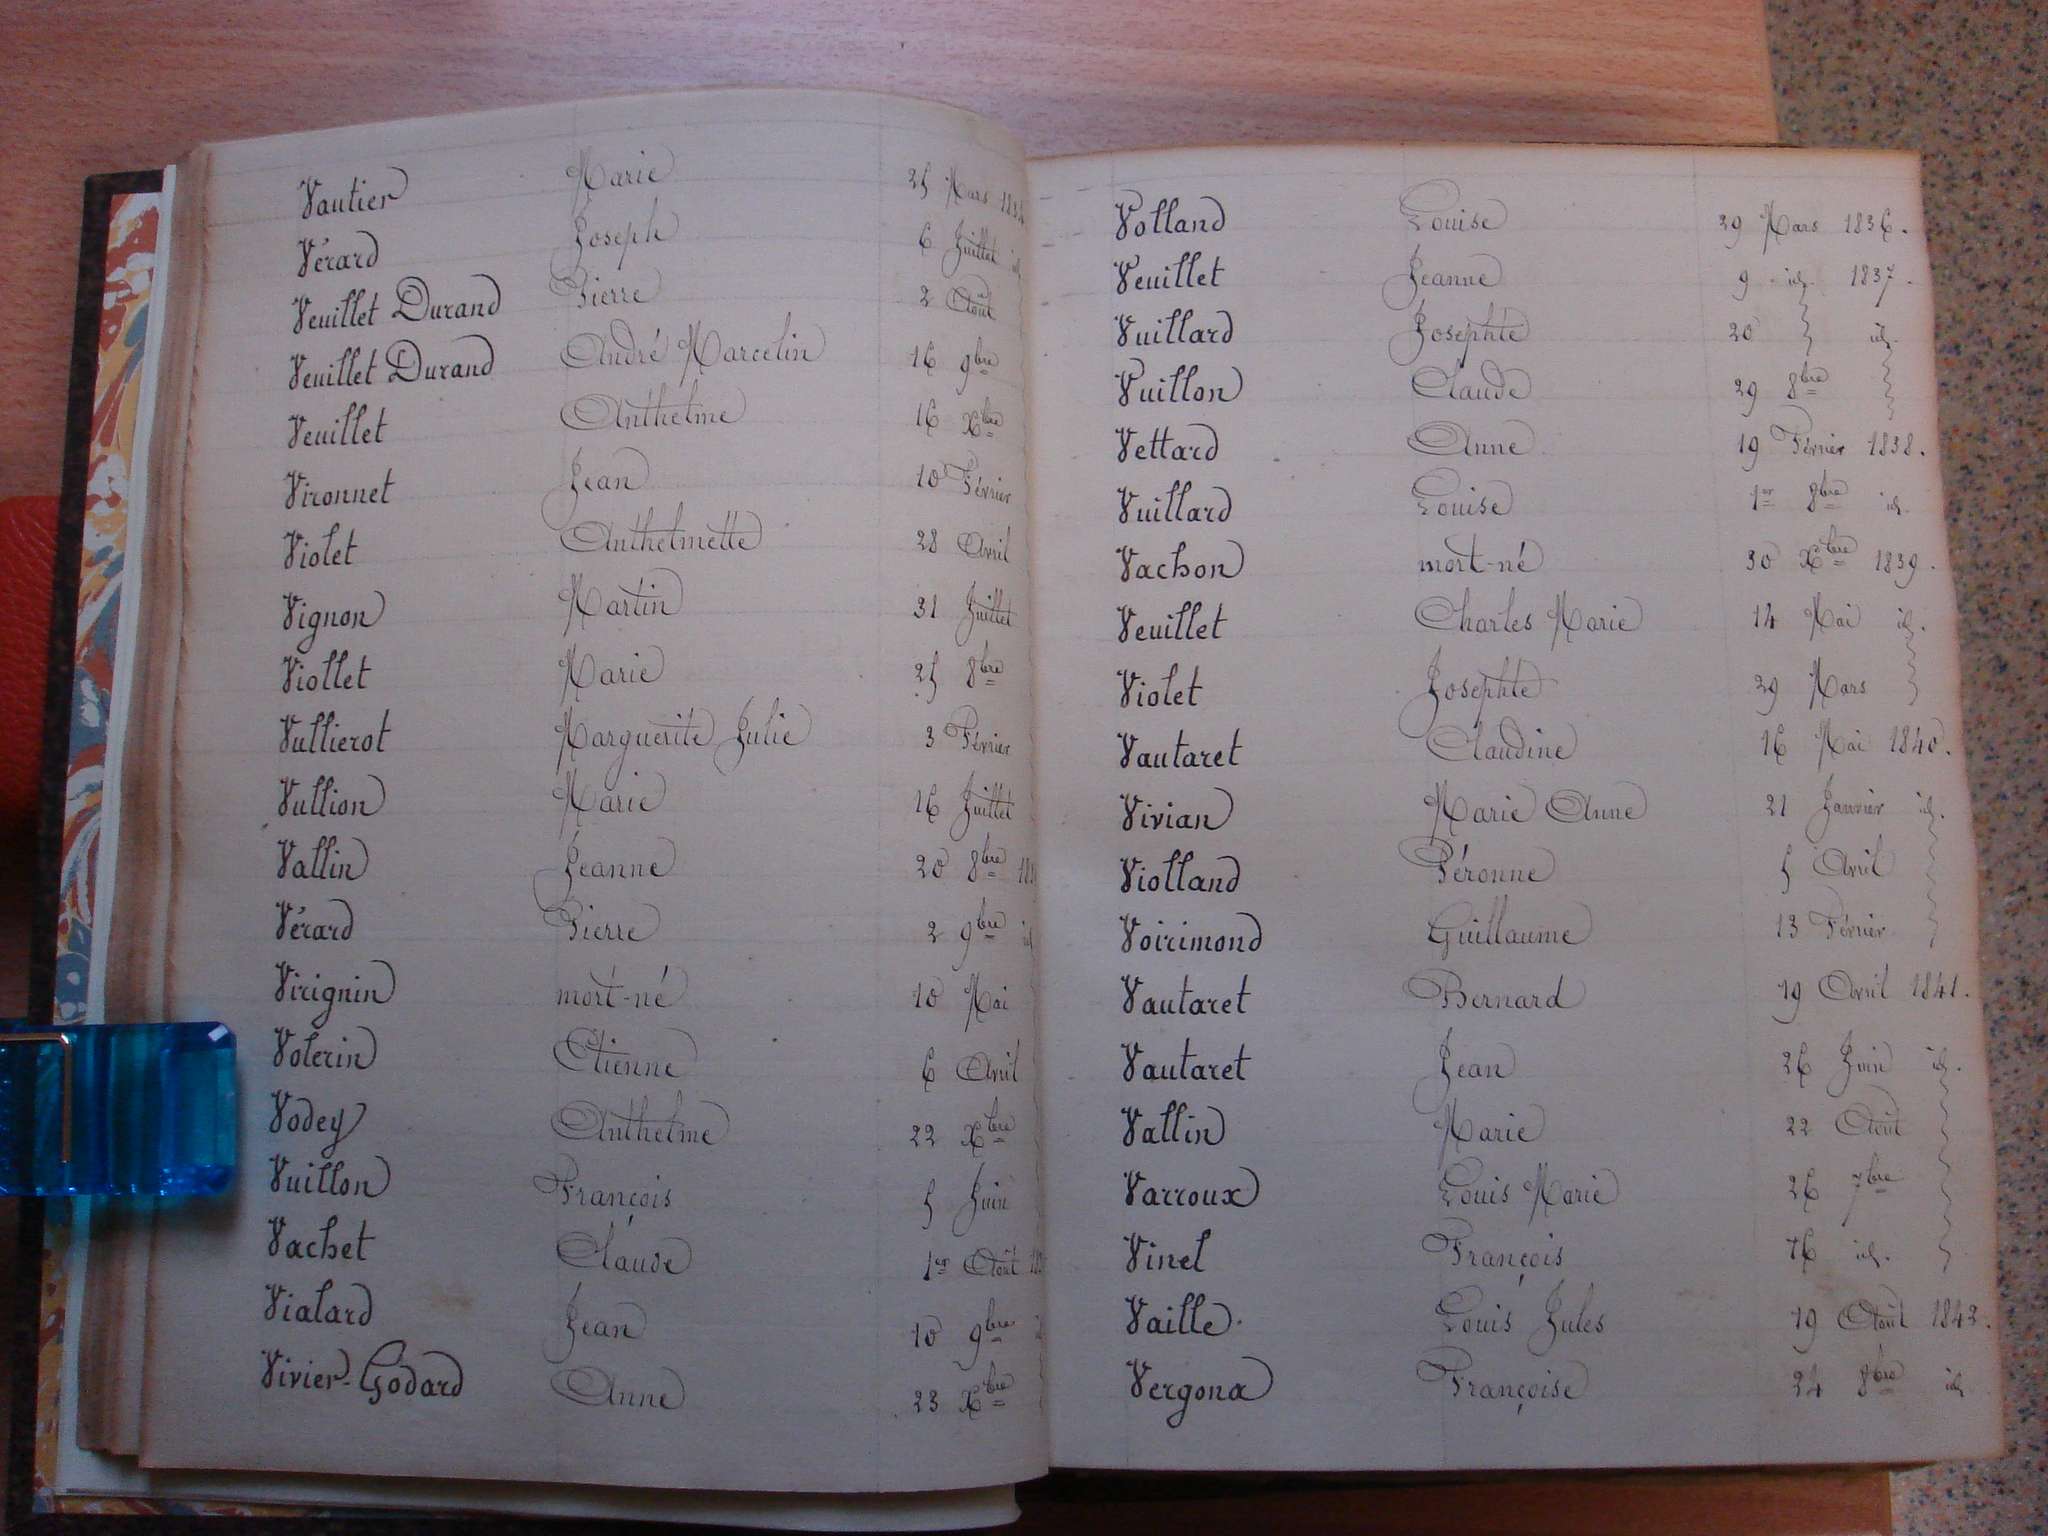 Vautier Marie 25 Mars
Vérard Joseph 6 Juillet id
Veuillet Durand Pierre 2 Août
Veuillet Durand André Marcelin 16 9bre
Veuillet Anthelme 16 Xbre
Vironnet Jean 10 Février
Violet Anthelmette 28 Avril
Vignon Martin 31 Juillet
Viollet Marie 25 8bre
Vullierot Marguerite Julie 3 Février
Vullion Marie 16 Juillet
Vallin Jeanne 20 8bre
Vérard Pierre 2 9bre id
Virignin mort-né 10 Mai
Volerin Etienne 6 Avril
Vodey Anthelme 22 Xbre
Vuillon François 5 Juin
Vachet Claude 1er Août
Vialard Jean 10 9bre
Vivier-Godard Anne 23 Xbre
Volland Louise 29 Mars 1836.
Veuillet Jeanne 9 id. 1837.
Vuillard Josephte 20 id.
Vuillon Claude 29 8bre
Vettard Anne 19 Février 1838.
Vuillard Louise 1er 8bre id.
Vachon mort-né 30 Xbre 1839.
Veuillet Charles Marie 14 Mai id.
Violet Josephte 29 Mars
Vautaret Claudine 16 Mai 1840.
Vivian Marie Anne 21 Janvier id.
Violland Péronne 5 Avril
Voirimond Guillaume 13 Février
Vautaret Bernard 19 Avril 1841.
Vautaret Jean 26 Juin id.
Vallin Marie 22 Août
Varroux Louis Marie 26 7bre
Vinel François 16 id.
Vaille. Louis Jules 19 Août 1843.
Vergona Françoise 24 8bre id